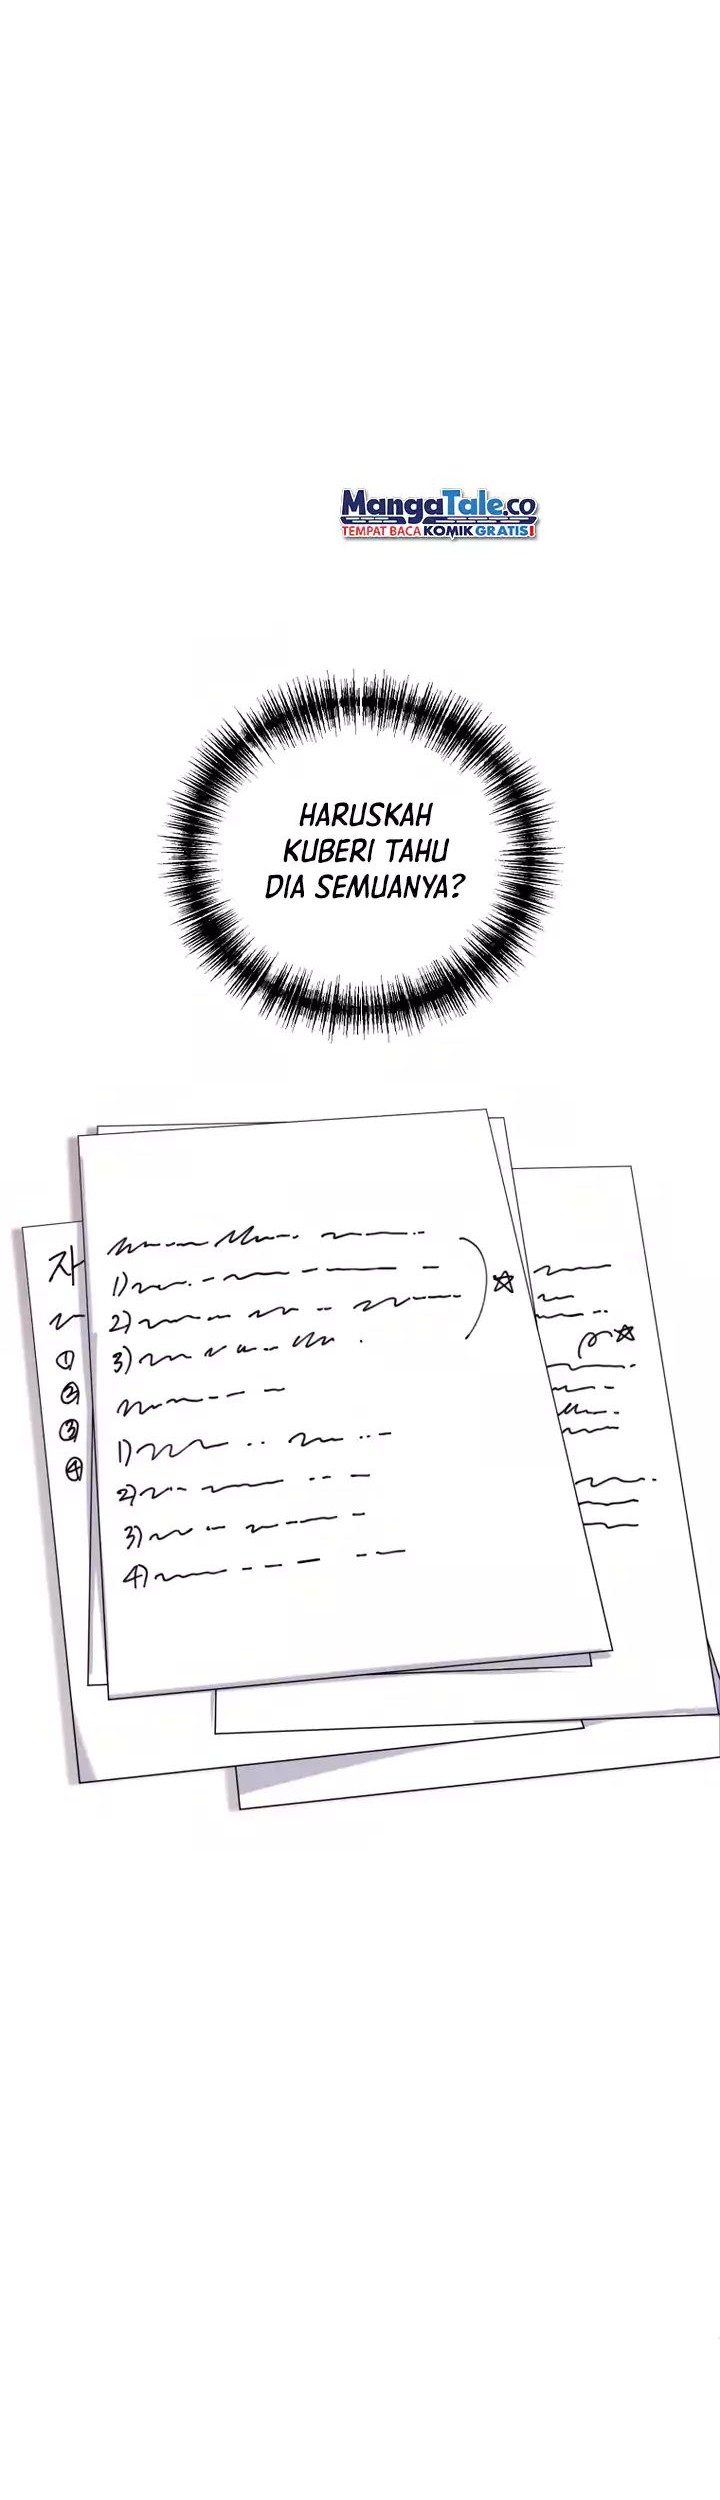 MangaTale.co
TEMPAT BACA KOMIK GRATIS!
HARUSKAH
KUBERI TAHU
DIA SEMUANYA?
자
1)
2)
3)
1)
2)
3)
4)
①
②
③
④